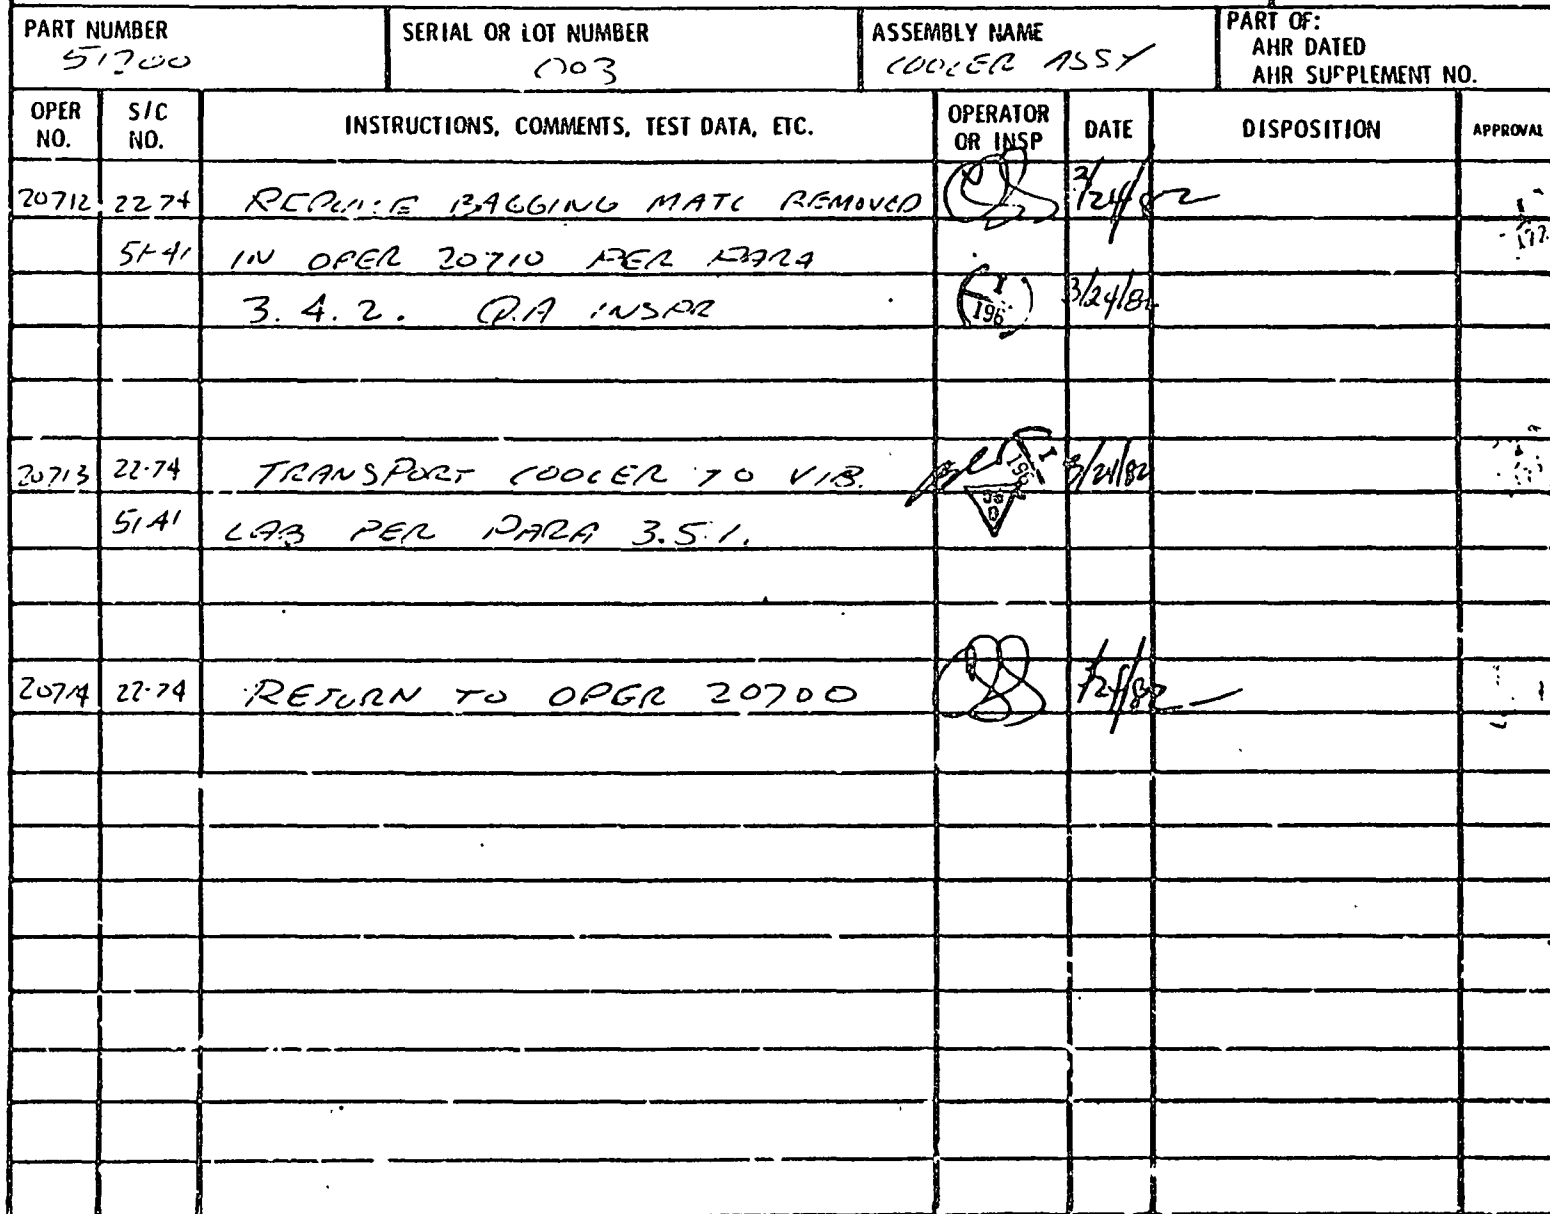 PART NUMBER
51700
SERIAL OR LOT NUMBER
003
ASSEMBLY NAME
COOLER ASSY
PART OF:
AHR DATED
AHR SUPPLEMENT NO.
OPER NO.
S/C NO.
INSTRUCTIONS, COMMENTS, TEST DATA, ETC.
OPERATOR OR INSP
DATE
DISPOSITION
APPROVAL
20712 22 74 BAGGING MATL REMOVED /24/82
51-41 IN OPER 20710 PER PARA
3.4.2. Q.A INSPR I 196 3/24/82
20713 22-74 TRANSPORT COOLER TO VIB. I 196 3/24/82
51A1 LAB PER PARA 3.5.1.
20714 22-74 RETURN TO OPER 20700 /82